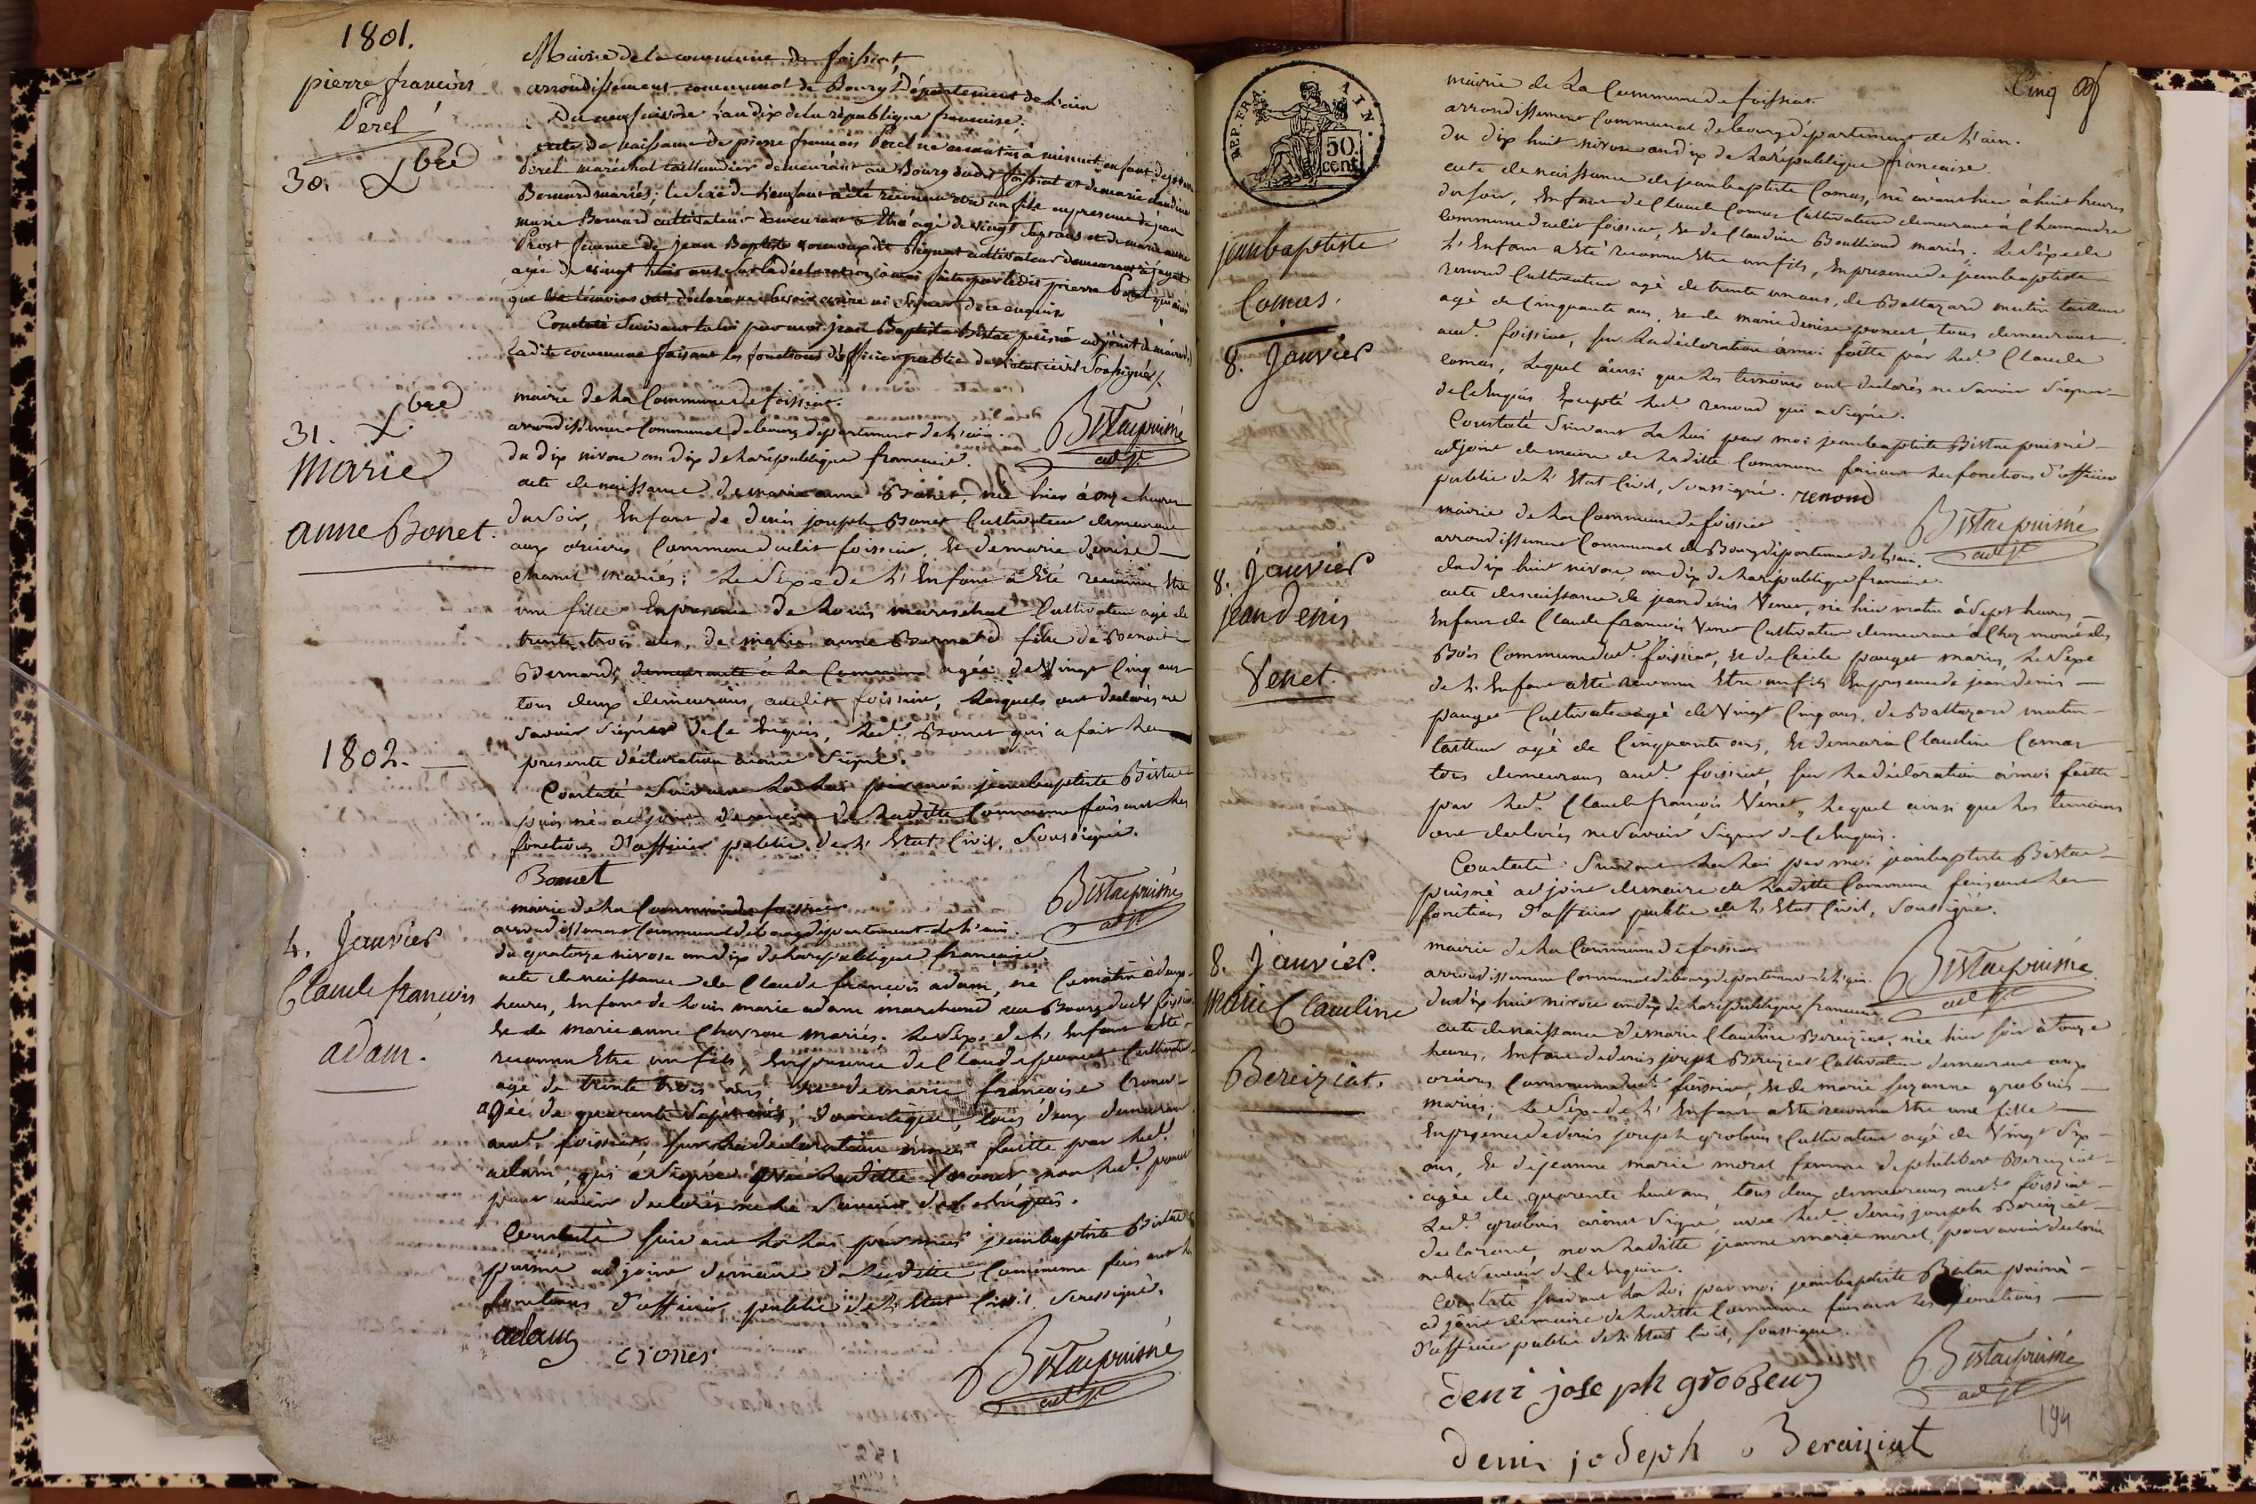 1801.
pierre francois
Perel
30. Xbre
Mairie de la commune de foissiat
arrondissement communal de Bourg Département de L'ain
Du neuf nivose l'an dix de la république francaise;
acte de naissance de pierre francois Perel né avant a minuit enfant de
Perel maréchal taillandier demeurant au Bourg dudit foissiat et de marie claudine
Bernard mariés; le sexe de l'enfant a été reconnu etre un fils en presence de jean
marie Bernard cultivateur demeurant a agé de vingt sept ans et de marie anne
Prost femme de jean Baptiste cultivateur demeurant à jayat
agée de vingt trois ans sur la déclaration à moi faite par ledit pierre Perel qui ainsi
que les témoins ont déclaré ne savoir écrire ni signer de ce enquis
Constaté suivant la loi par moi jean Baptiste Bistac puisné adjoint de maire de
ladite commune faisant les fonctions d'officier public de l'état civil Soussigné
Bistac puisné
adjt.
31. Xbre
Marie
anne Bonet.
mairie de La Commune de foissiat.
arrondissement Communal de bourg département de L'ain.
du dix nivose an dix de la république francaise.
acte de naissance de marie anne Bonet, née hier à onze heures
du soir, Enfant de denis joseph Bonet Cultivateur demeurant
aux Commune dudit foissiat, Et de marie denise
mariés; Le Sexe de L'Enfant a Eté reconnu Etre
une fille En presence de Louis mareschal Cultivateur agé de
trente trois ans, de marie anne Bernard fille de Benoit
Bernard, demeurante à La Commune agée de Vingt Cinq ans
tous deux demeurans, audit foissiat, Lesquels ont declarés ne
savoir signer de Ce Enquis, Led. Bonet qui a fait La
presente déclaration signé.
Constaté Suivant La Loi par moi jean baptiste Bistac
puisné adjoint de maire de Laditte Commune faisant Les
fonctions d'officier public de L'Etat Civil, Soussigné.
Bonnet
Bistac puisné
adjt.
1802.
4. Janvier
Claude francois
adam.
mairie de La Commune de foissiat
arrondissement Communal de bourg département de L'ain.
du quatorze nivose an dix de La république française.
acte de naissance de Claude francois adam, né Ce matin à deux
heures, Enfant de Louis marie adam marchand au Bourg dudit foissiat
Et de marie anne mariés. Le Sexe de L'Enfant a Eté
reconnu Etre un fils, En presence de Claude Cultivateur
agé de trente trois ans Et de marie françoise
agée de quarante sept ans, domestique, tous deux demeurant
aud. foissiat, sur La déclaration à moi faitte par Led.
adam, qui a Signé avec Laditte non Led.
pour avoir declarés ne le Savoir de Ce Enquis.
Constaté suivant La Loi par moi jean baptiste Bistac
puisné adjoint de maire de Laditte Commune faisant les
fonctions d'officier public de L'Etat Civil Soussigné.
adam
crones
Bistac puisné
adjt.
Cinq
REP. FRA. AIN.
50. cent.
jean baptiste
Comas.
8. Janvier
mairie de La Commune de foissiat.
arrondissement Communal de bourg département de L'ain.
du dix huit nivose an dix de La république française
acte de naissance de jean baptiste Comas, né avant hier à huit heures
du soir, Enfant de Claude Comas Cultivateur demeurant à Chamandre
Commune dudit foissiat, Et de Claudine Bouilloud mariés. Le Sexe de
L'Enfant a Eté reconnu Etre un fils, En presence de jean baptiste
renoud Cultivateur agé de trente un ans, de Baltazard mutin tailleur
agé de Cinquante ans, Et de marie denise poncet, tous demeurans
aud. foissiat, sur La déclaration à moi faitte par Led. Claude
comas, Lequel ainsi que Les temoins ont declarés ne Savoir Signer
de Ce Enquis Excepté Led. renoud qui a signé.
Constaté Suivant La Loi par moi jean baptiste Bistac puisné
adjoint de maire de Laditte Commune faisant Les fonctions d'officier
public de L'Etat Civil, Soussigné. renoud
Bistac puisné
adjt.
8. Janvier
jean denis
Venet.
mairie de La Commune de foissiat
arrondissement Communal de Bourg département de L'ain.
du dix huit nivose, an dix de La république francaise.
acte de naissance de jean denis Venet, né hier matin à Sept heures
Enfant de Claude francois Venet Cultivateur demeurant à Chez moné des
Bois Commune dud. foissiat, Et de Cecile pauget mariés, Le Sexe
de L'Enfant a Eté reconnu Etre un fils En presence de jean denis
pauget Cultivateur agé de Vingt Cinq ans, de Baltazard mutin
tailleur agé de Cinquante ans, Et de marie Claudine Comas
tous demeurans aud. foissiat, sur La déclaration à moi faitte
par Led. Claude françois Venet, Lequel ainsi que Les temoins
ont declarés ne Savoir Signer de Ce Enquis.
Constaté Suivant La Loi par moi jean baptiste Bistac
puisné adjoint de maire de Laditte Commune faisant Les
fonctions d'officier public de L'Etat Civil, Soussigné.
Bistac puisné
adjt.
8. Janvier.
marie Claudine
Bereiziat.
mairie de La Commune de foissiat
arrondissement Communal de bourg département de L'ain.
du dix huit nivose an dix de La république francaise
acte de naissance de marie Claudine Bereiziat, née hier soir à onze
heures, Enfant de denis joseph Bereiziat Cultivateur demeurant aux
Commune dud. foissiat, Et de marie suzanne grobuis
mariés; Le Sexe de L'Enfant a Eté reconnu Etre une fille
En presence de denis joseph grobuis Cultivateur agé de Vingt Six
ans, Et de jeanne marie morel femme de philibert Bereiziat
agée de quarente huit ans, tous deux demeurans aud. foissiat
Led. grobuis signé, avec Led. denis joseph Bereiziat
declarant, non Laditte jeanne marie morel, pour avoir declaré
ne le Savoir de Ce Enquise.
Constaté suivant La Loi par moi jean baptiste Bistac puisné
adjoint de maire de Laditte Commune faisant Les fonctions
d'officier public de L'Etat Civil, soussigné.
Bistac puisné
adjt.
deni joseph grobseuz
194
deni joseph Beraiziat